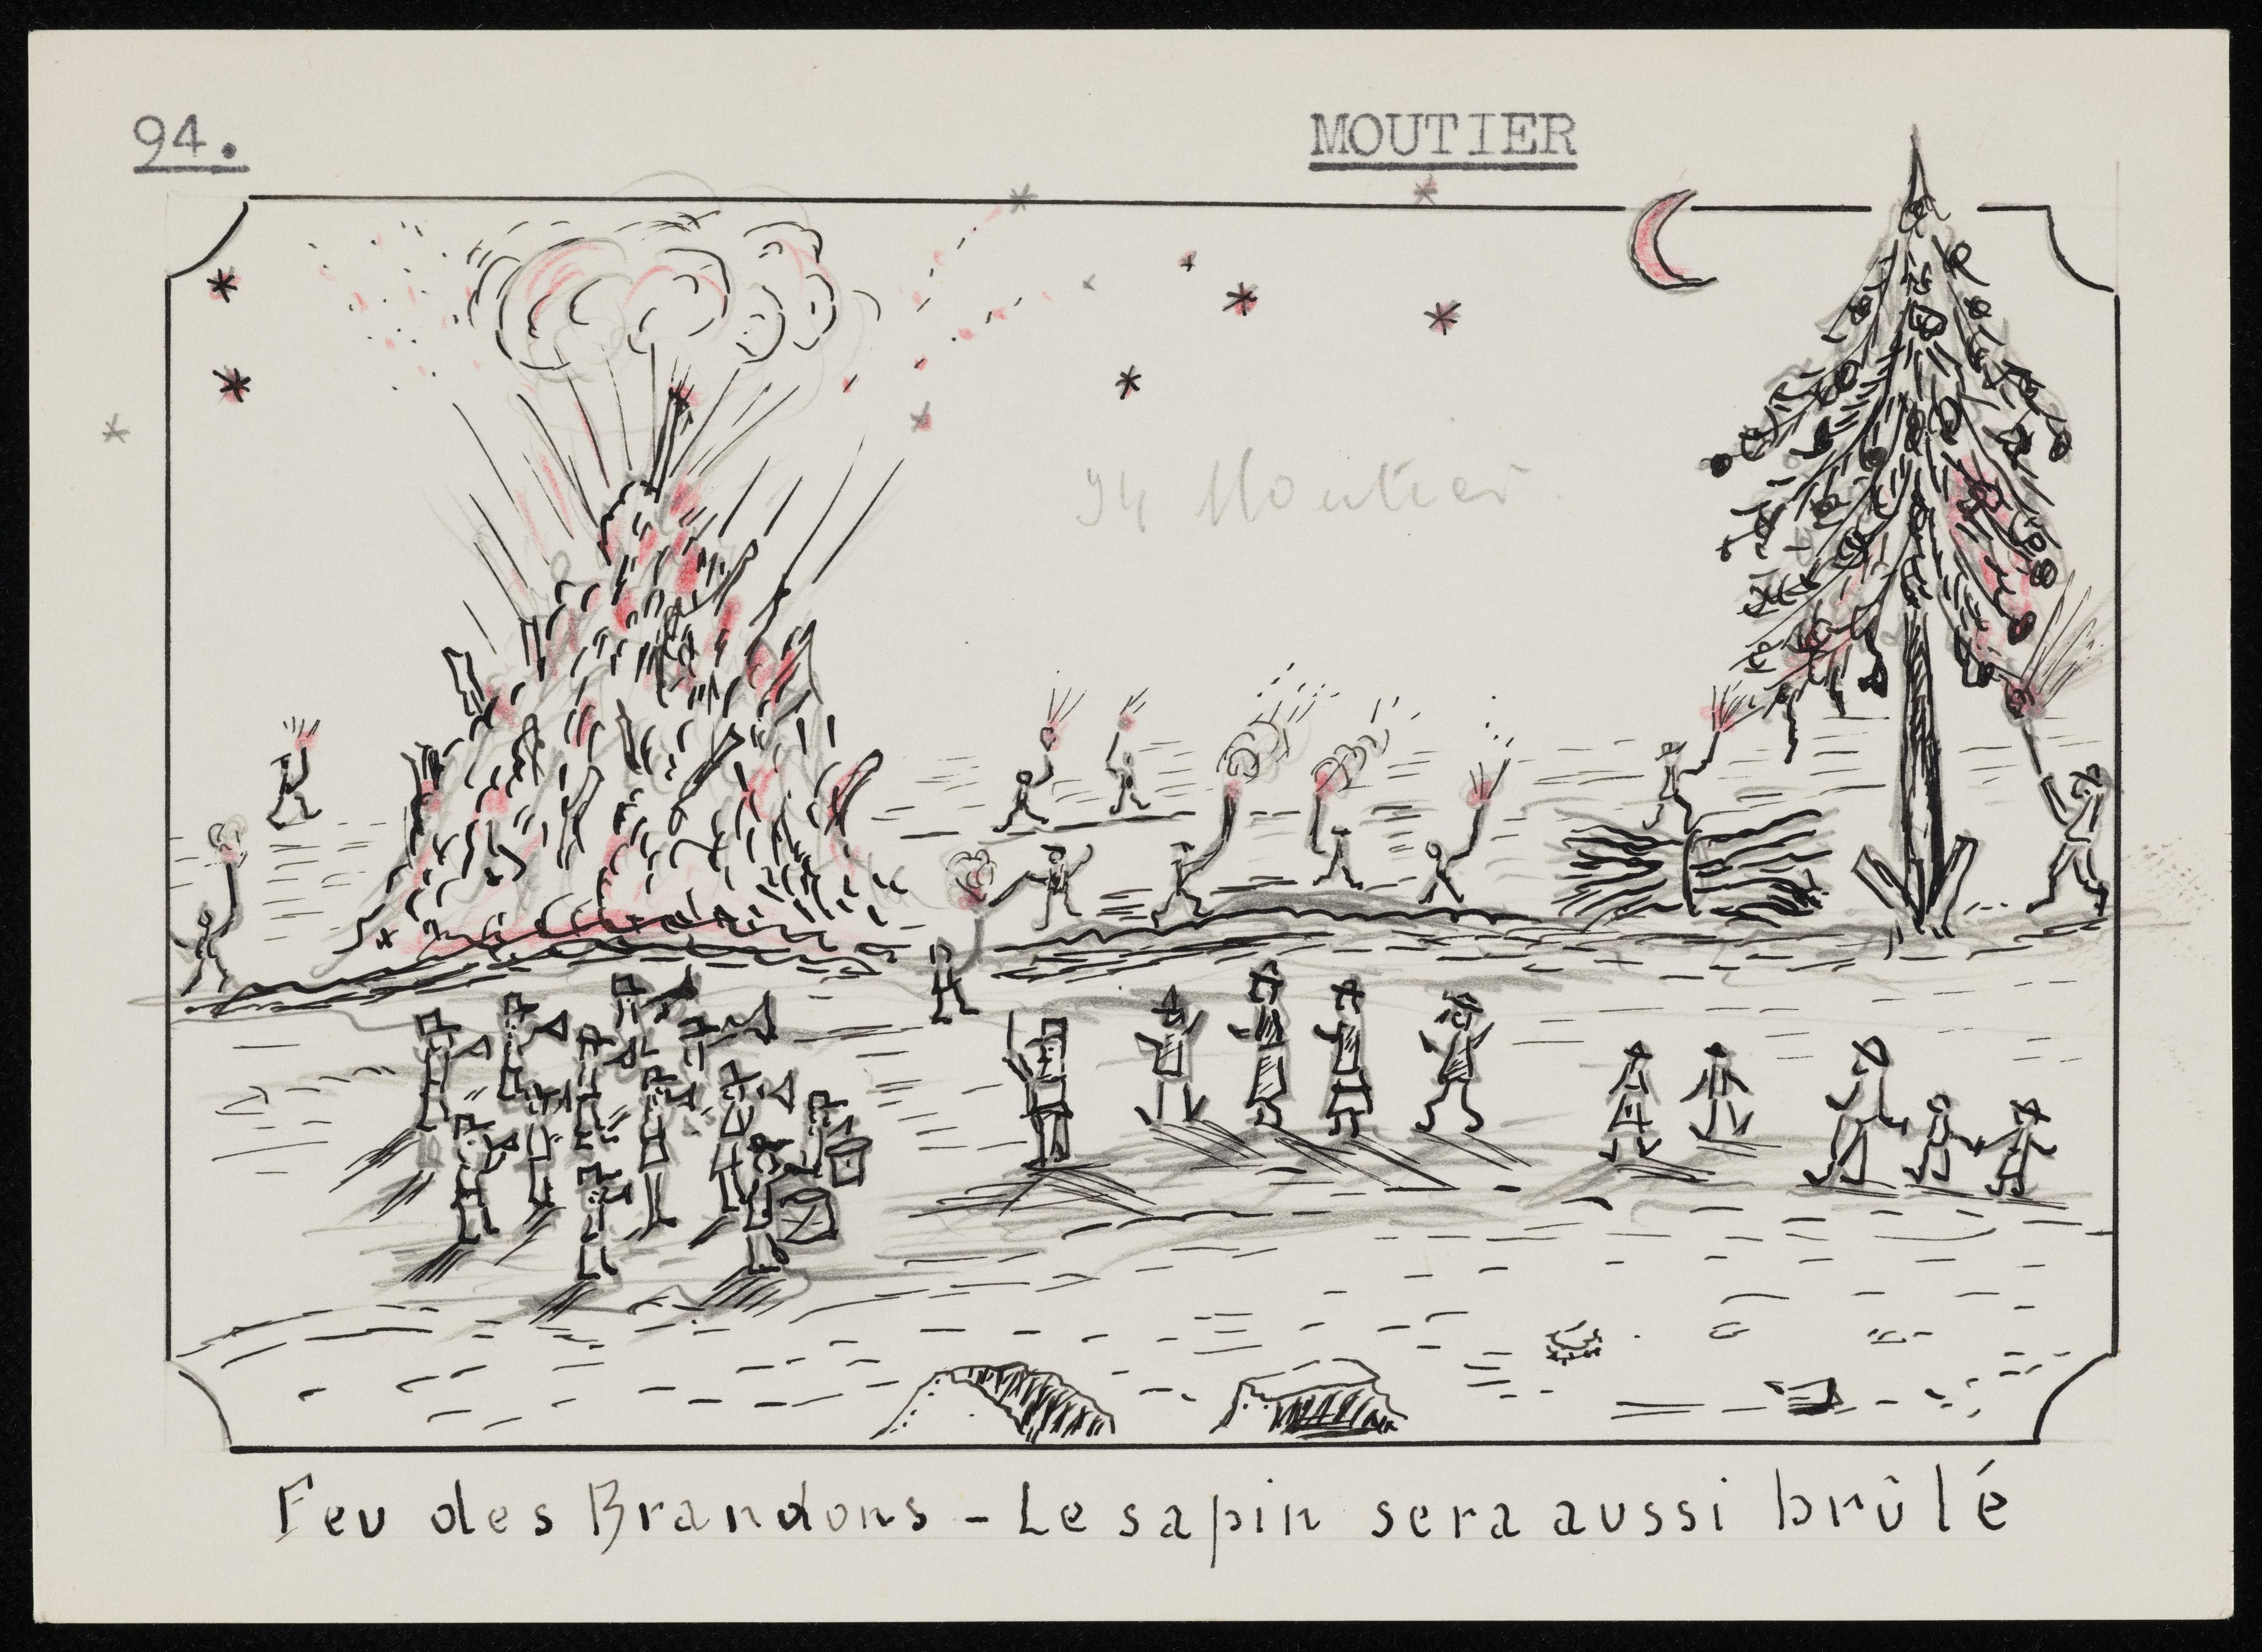 94.
MOUTIER
94 Moutier.
Feu des Brandons - Le sapin sera aussi brûlé